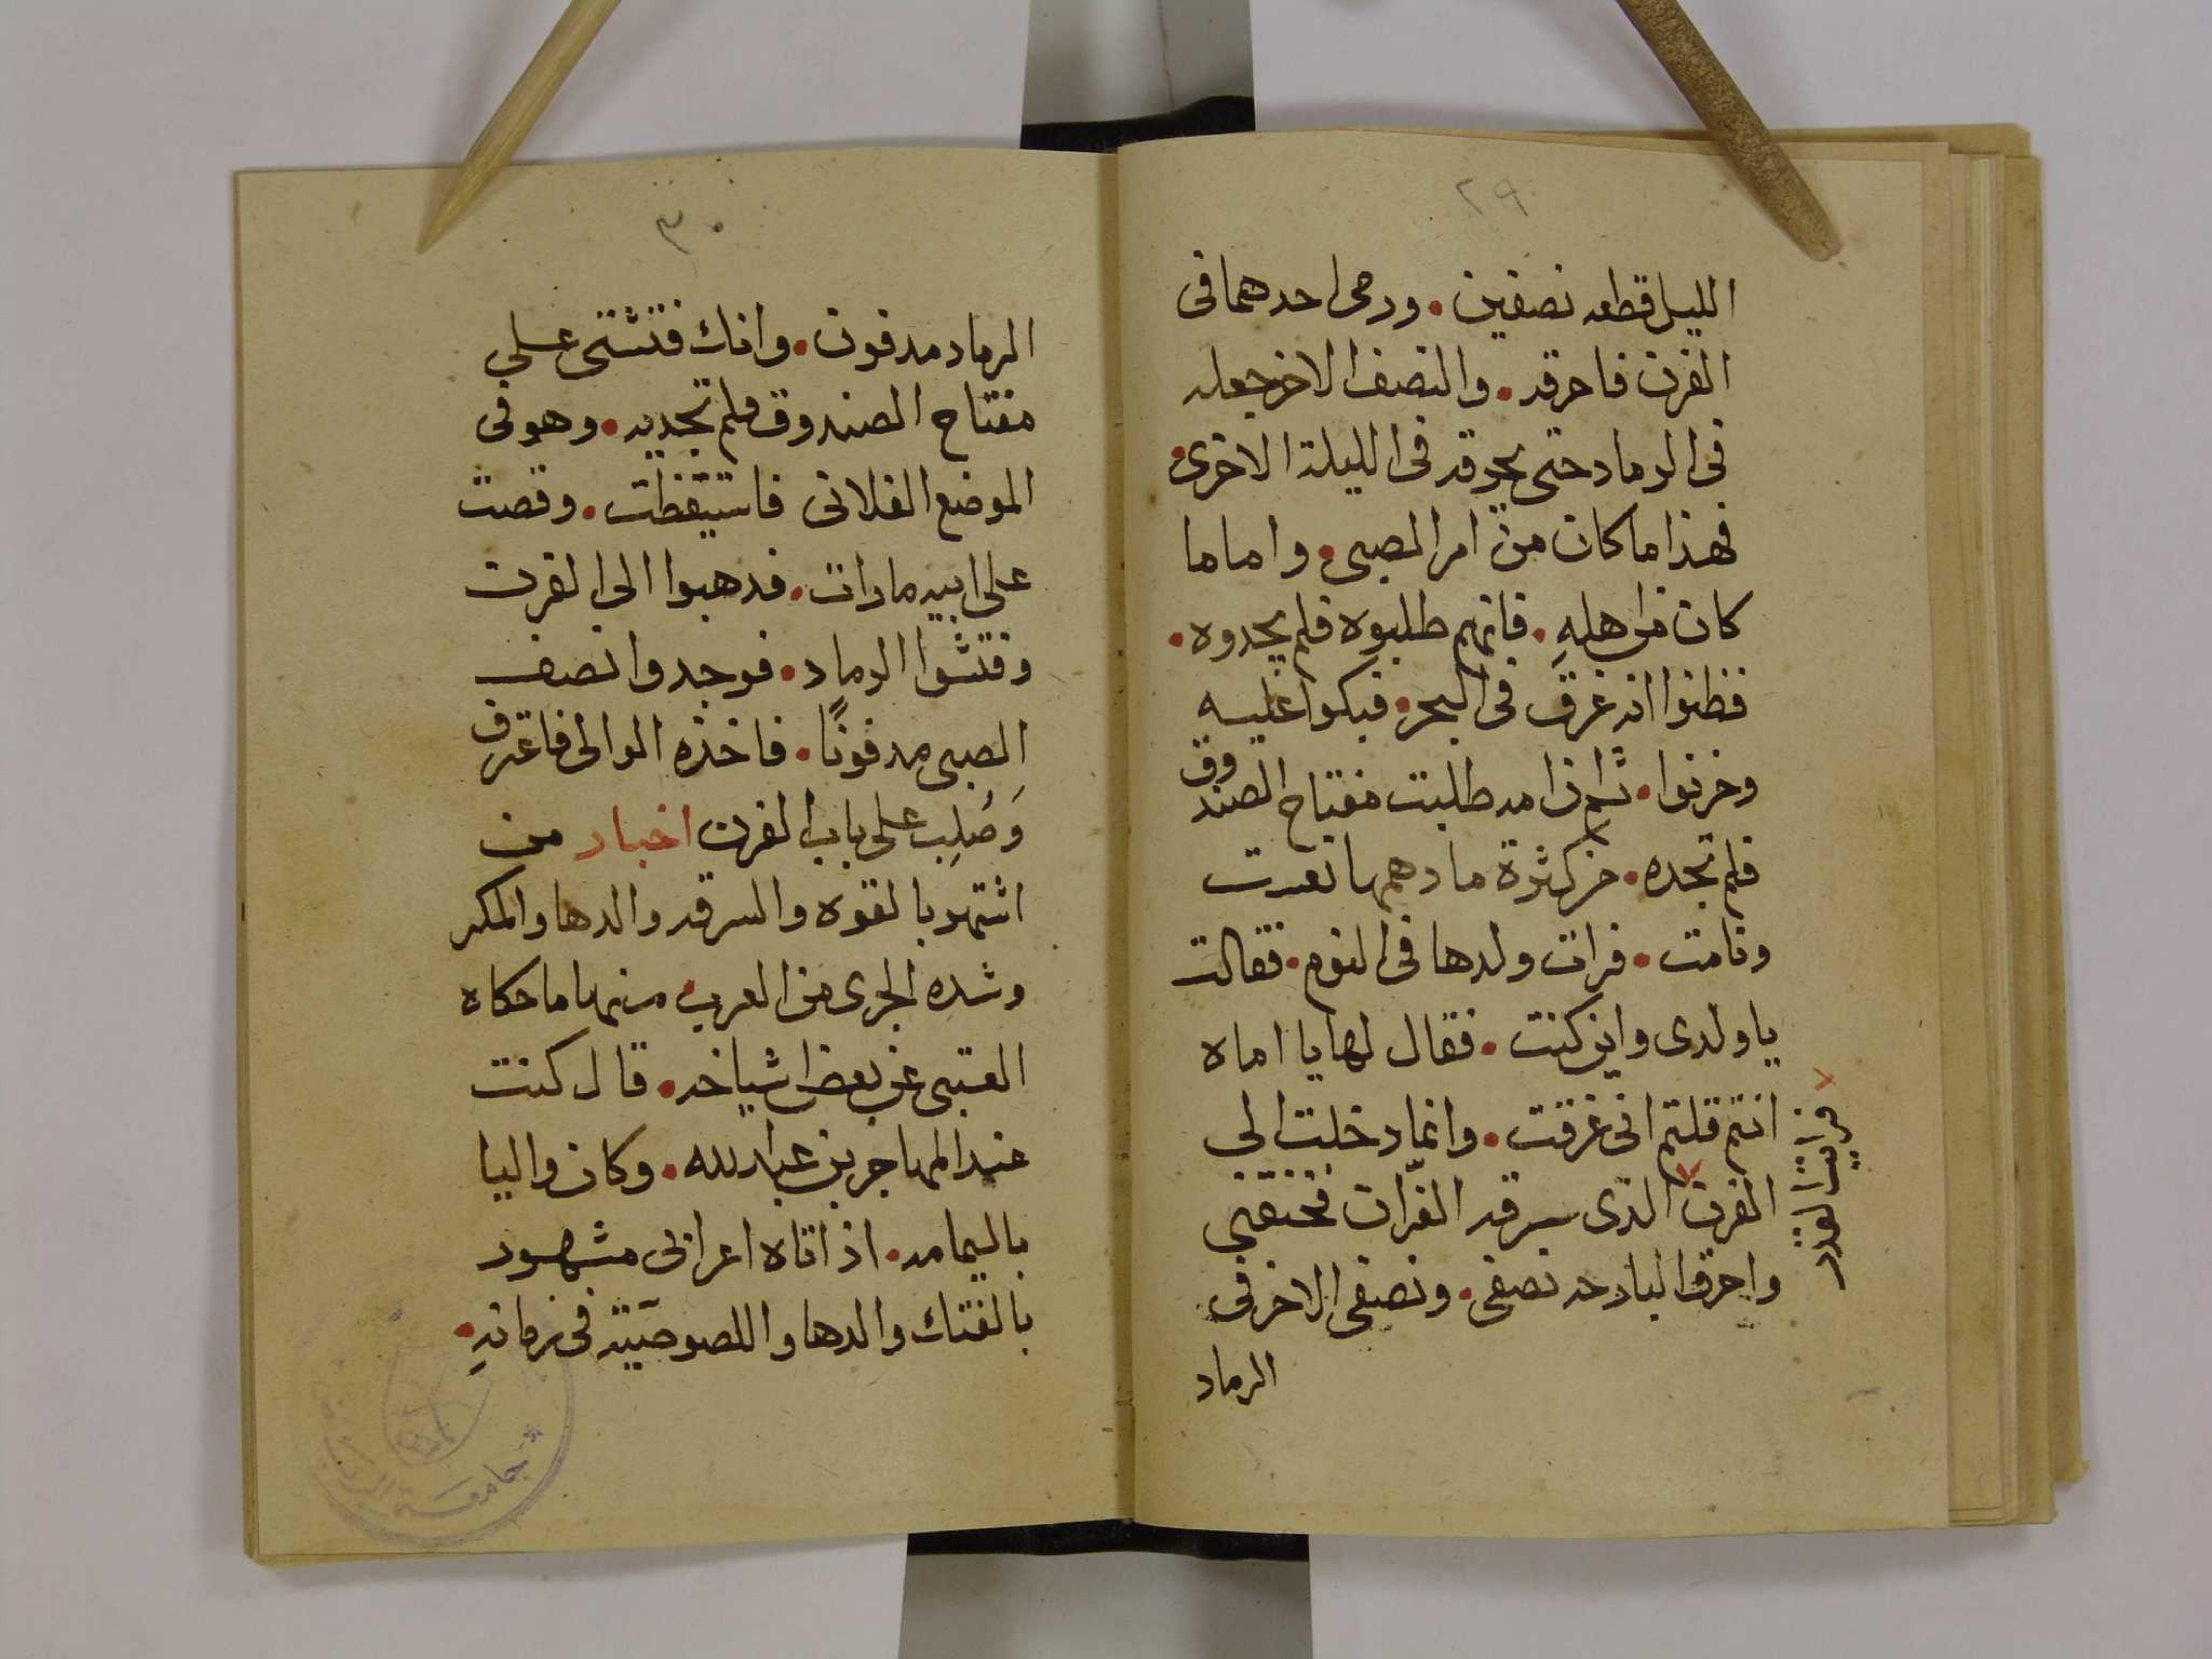 ٢٩
الليل قطعه نصفين . ورمى احدهما فى
الفرن فاحرقه . والنصف الاخر جعله
فى الرماد حتى يحرقه فى الليلة الاخرى .
فهذا ما كان من امر الصبى . واما ما
كان من اهله . فانهم طلبوه فلم يجدوه .
فظنوا انه غرق فى البحر . فبكوا عليه
وحزنوا . ثم ان امه طلبت مفتاح الصندوق
فلم تجده . من كثرة ما دهمها تعبت
ونامت . فرات ولدها فى النوم . فقالت
يا ولدى واين كنت . فقال لها يا اماه
انتم قلتم انى غرقت . وانما دخلت الى
الفرن الذى سرقه الفران فخنقنى
واحرق البارحه نصفى . ونصفى الاخر فى
الرماد
٣٠
الرماد مدفون . وانك فتشتى على
مفتاح الصندوق فلم تجديه . وهو فى
الموضع الفلانى فاستيقظت . وقصت
على ابيه ما رات . فدهبوا الى الفرن
وفتشوا الرماد . فوجدوا نصف
الصبى مدفونًا . فاخذه الوالى فاعترف
وَصُلِب على باب الفرن اخبار من
اشتهر بالقوه والسرقه والدها والمكر
وشده الجرى من العرب . منها ما حكاه
العتبى عن بعض اشياخه . قال كنت
عند المهاجر بن عبد الله . وكان واليا
باليمامه . اذ اتاه اعرابى مشهور
بالفتك والدها واللصوصيّة فى زمانهِ .
جامعة